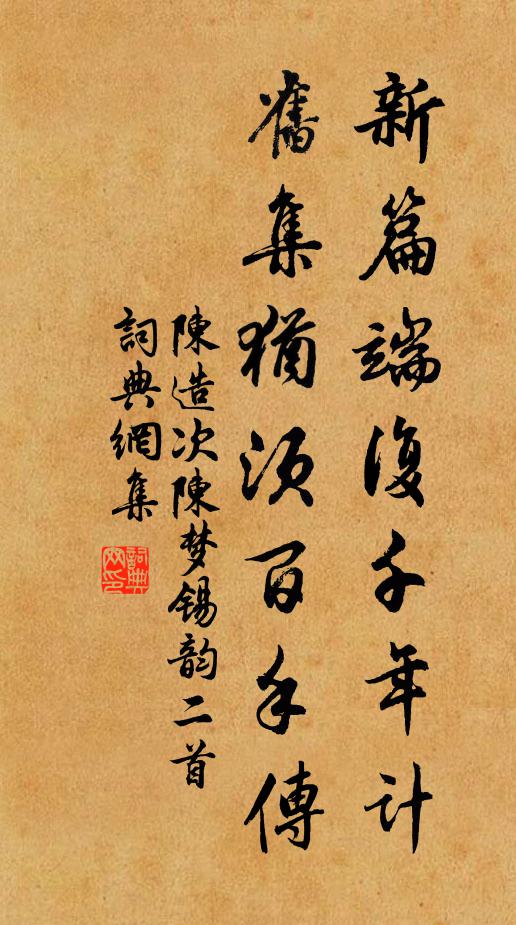 新篇端復千年計
舊集猶須百手傳
陳造次陳梦锡韵二首
詞典網集
詞典網印